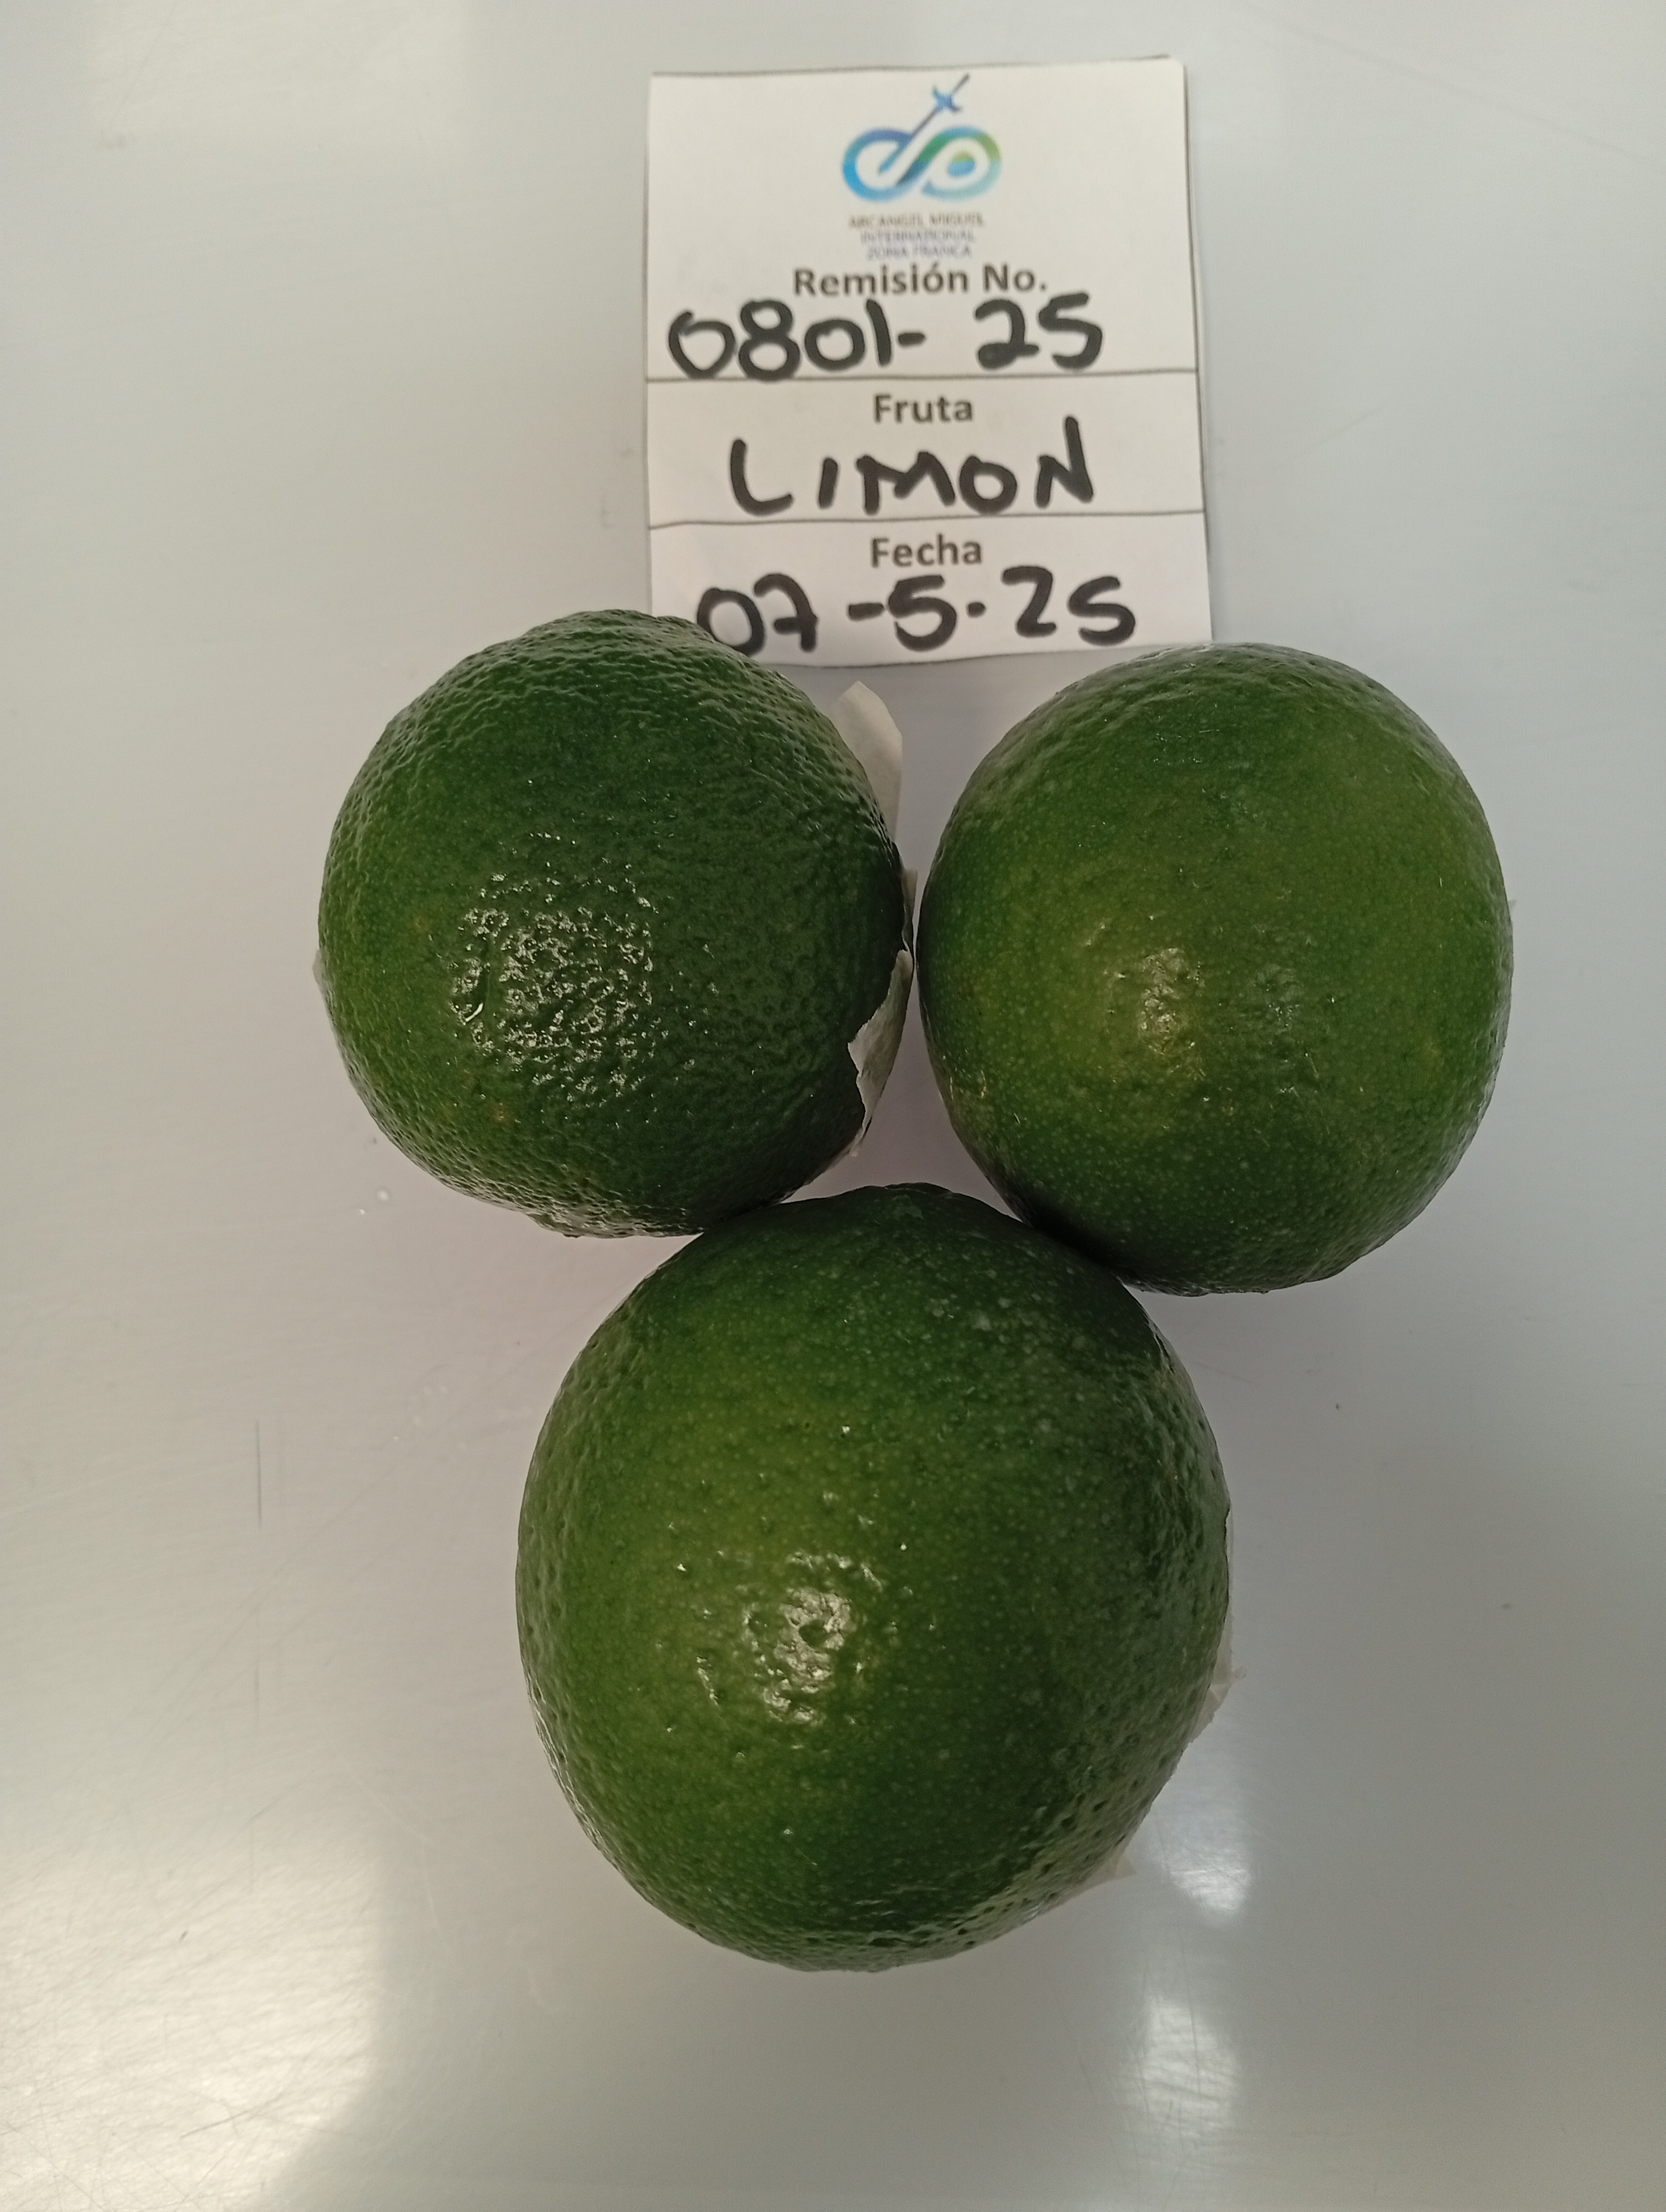 ARCANGEL MIGUEL
INTERNATIONAL
ZONA FRANCA
Remisión No.
0801- 25
Fruta
LIMON
Fecha
07-5-25